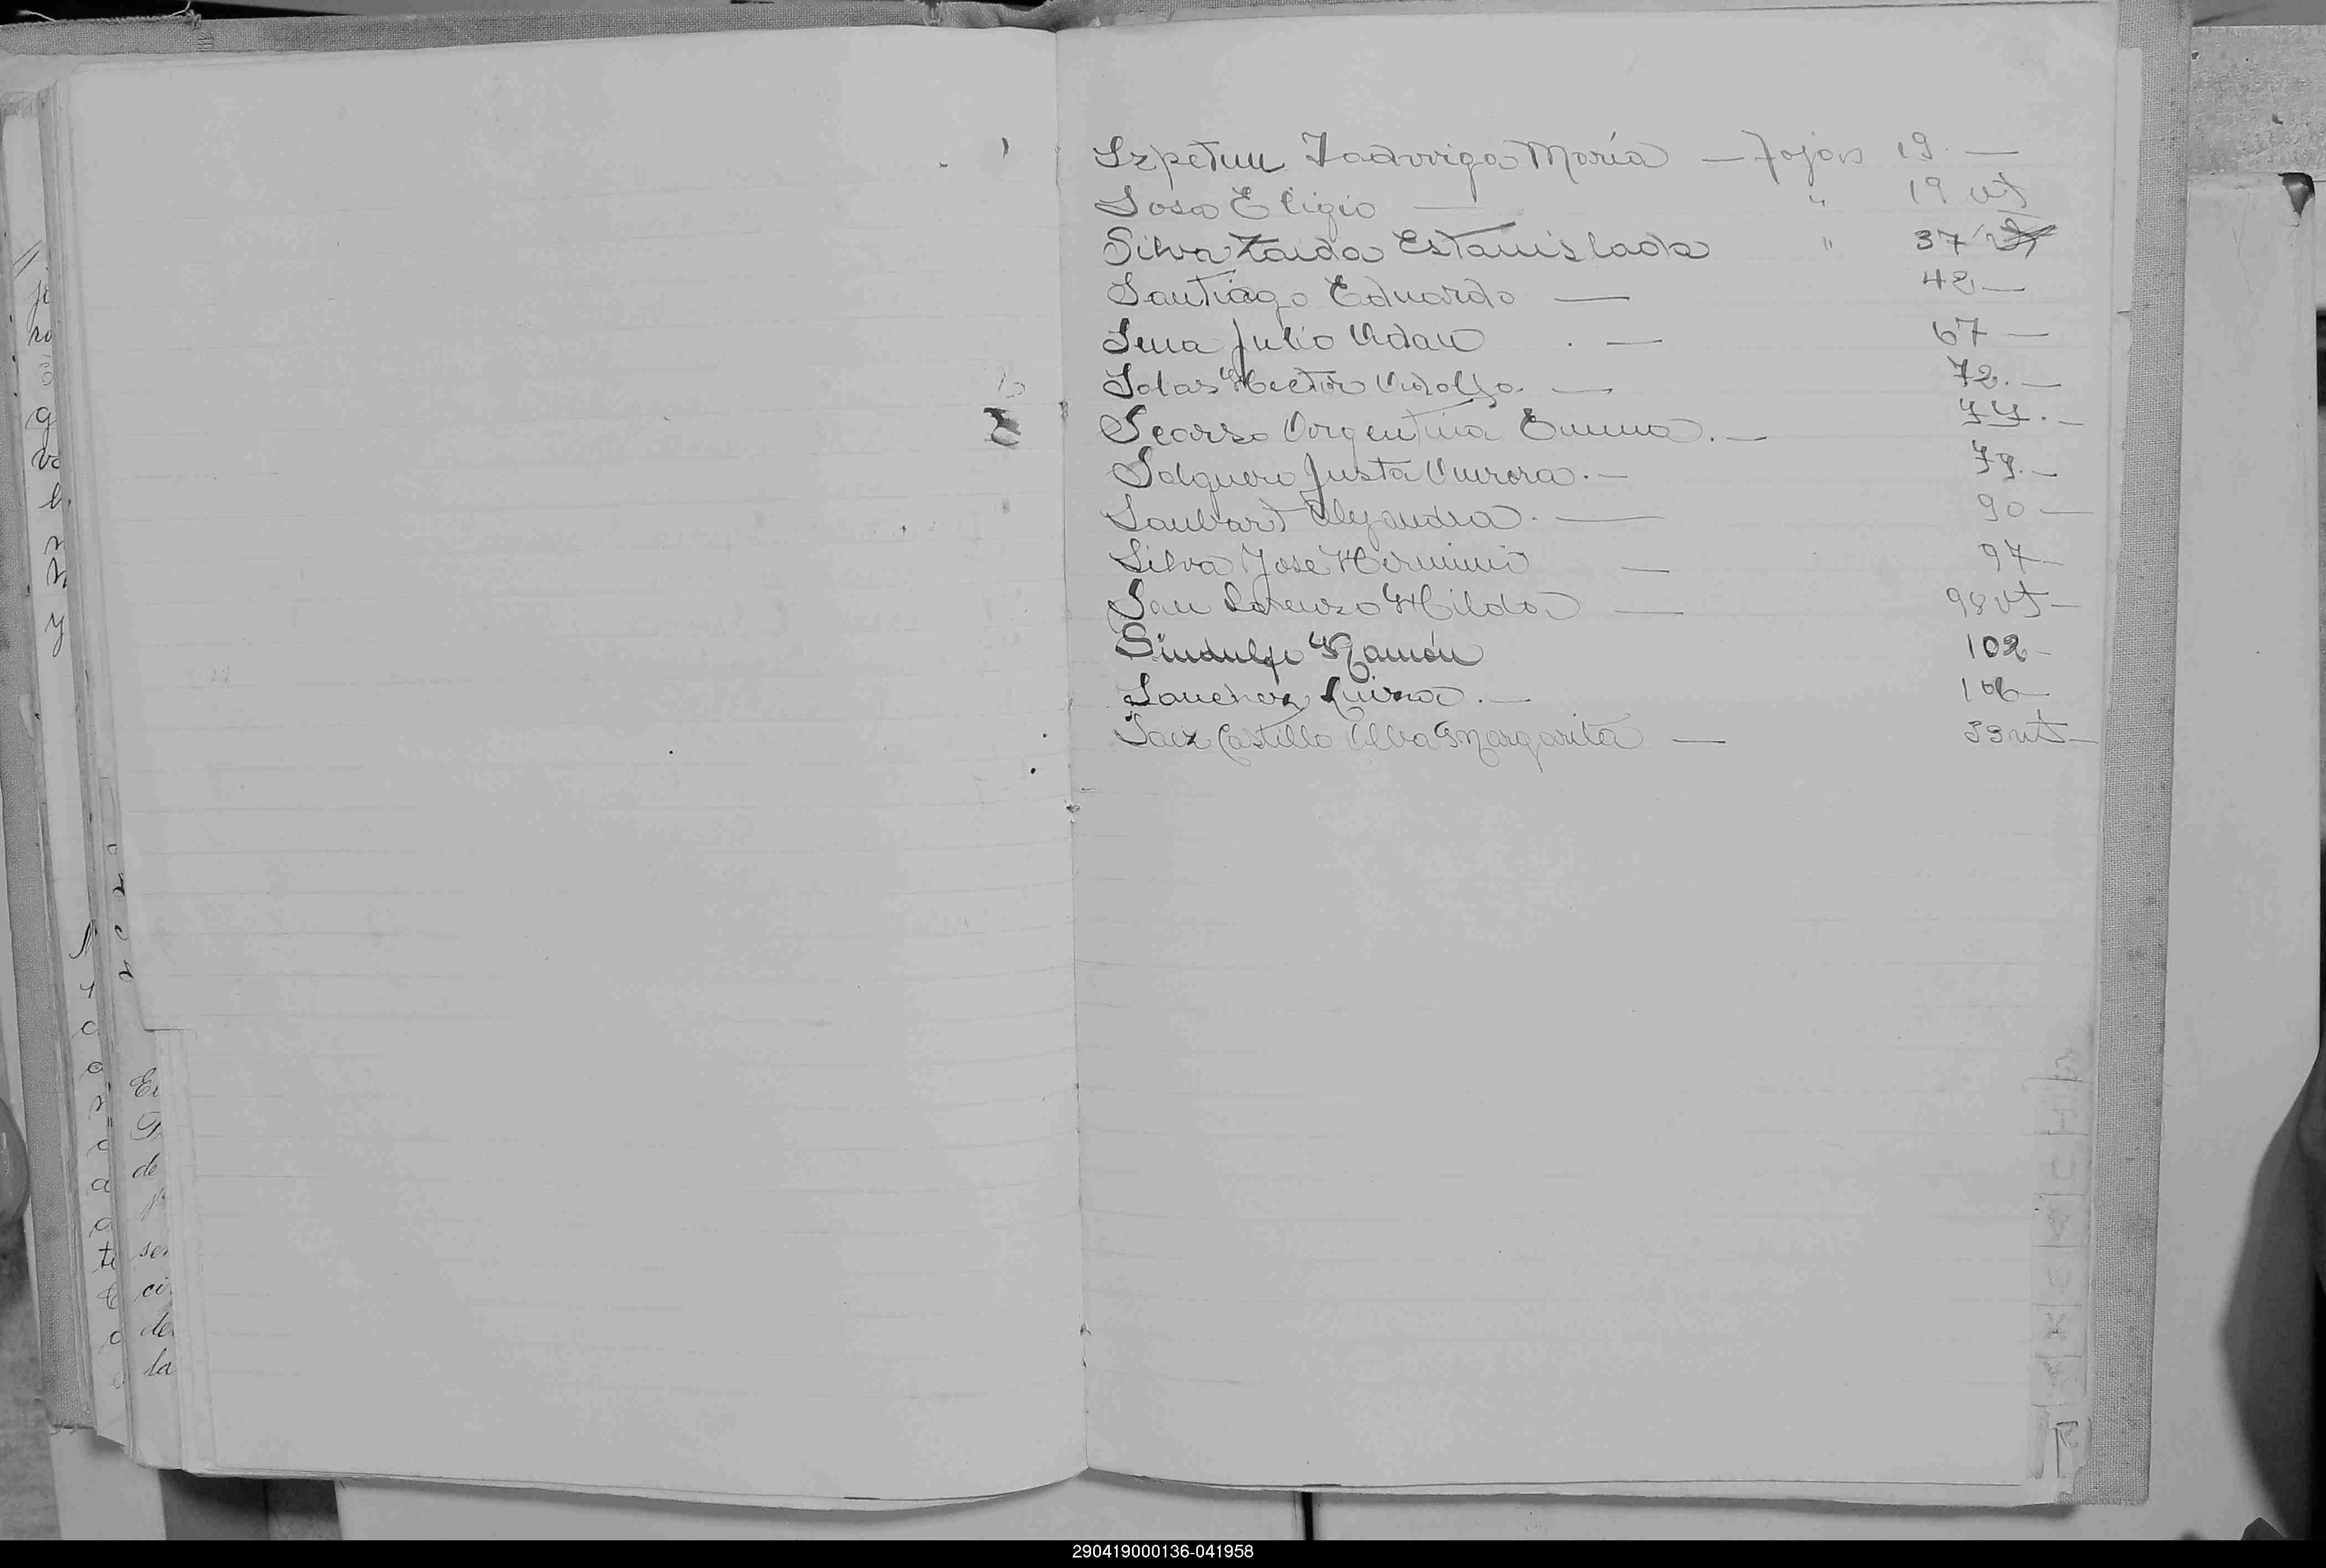 Szpetun Jadwiga María — Fojas 19. —
Sosa Eligio — " 19 vt
Silva Zaida Estanislada " 37
Santiago Eduardo — 42 —
Sena Julio Adan . — 67 —
Salas Hector Adolfo. — 72. —
Scarso Argentina Emma. — 77. —
Salguero Justa Aurora. — 79. —
Saubart Alejandra. — 90 —
Silva José Herminio — 97 —
San Lorenzo Hilda — 98 vt —
Sindulfo Ramón 102 —
Sanchez Luisa. — 106 —
Saez Castillo Alba Margarita — 33 vt —
290419000136-041958